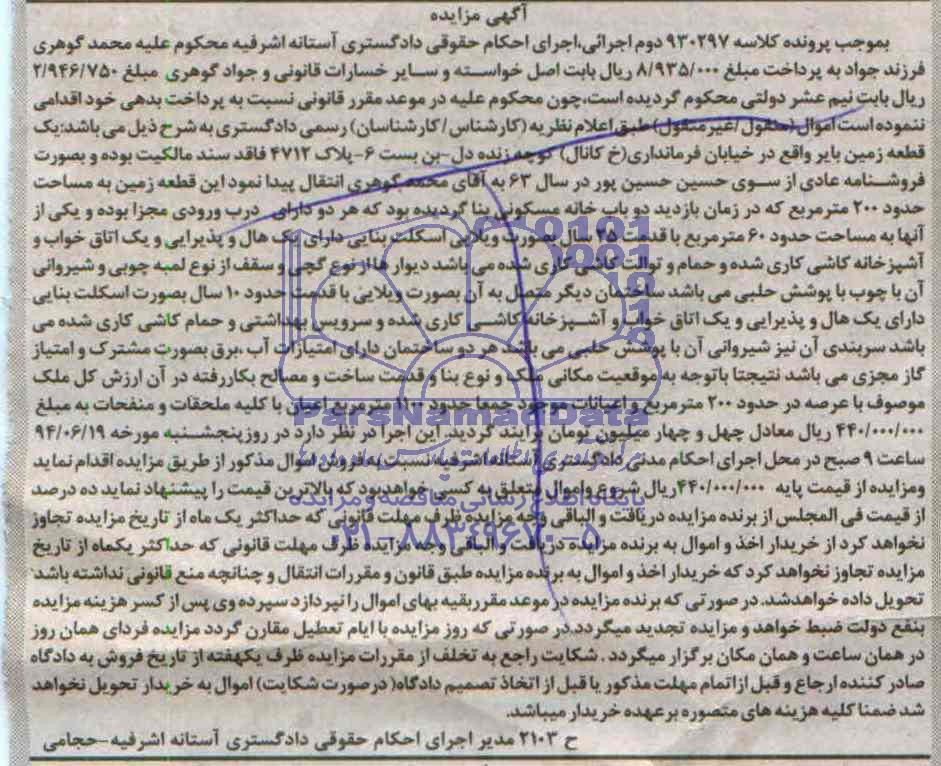 آگهی مزایده
بموجب پرونده کلاسه ۹۳۰۲۹۷ دوم اجرائی،اجرای احکام حقوقی دادگستری آستانه اشرفیه محکوم علیه محمد گوهری
فرزند جواد به پرداخت مبلغ ۸/۹۳۵/۰۰۰ ریال بابت اصل خواسته و سایر خسارات قانونی و جواد گوهری مبلغ ۲/۹۴۶/۷۵۰
ریال بابت نیم عشر دولتی محکوم گردیده است،چون محکوم علیه در موعد مقرر قانونی نسبت به پرداخت بدهی خود اقدامی
ننموده است اموال (منقول/غیرمنقول) طبق اعلام نظریه (کارشناس/کارشناسان) رسمی دادگستری به شرح ذیل می باشد:یک
قطعه زمین بایر واقع در خیابان فرمانداری(خ کانال) کوچه زنده دل-بن بست ۶-پلاک ۴۷۱۲ فاقد سند مالکیت بوده و بصورت
فروشنامه عادی از سوی حسین حسین پور در سال ۶۳ به آقای محمد گوهری انتقال پیدا نمود این قطعه زمین به مساحت
حدود ۲۰۰ مترمربع که در زمان بازدید دو باب خانه مسکونی بنا گردیده بود که هر دو دارای درب ورودی مجزا بوده و یکی از
آنها به مساحت حدود ۶۰ مترمربع با قدمت ۲۵ سال بصورت ویلایی اسکلت بنایی دارای یک هال و پذیرایی و یک اتاق خواب و
آشپزخانه کاشی کاری شده و حمام و توالت کاشی کاری شده می باشد دیوار ها از نوع گچی و سقف از نوع لمبه چوبی و شیروانی
آن با چوب با پوشش حلبی می باشد ساختمان دیگر متصل به آن بصورت ویلایی با قدمت حدود ۱۰ سال بصورت اسکلت بنایی
دارای یک هال و پذیرایی و یک اتاق خواب و آشپزخانه کاشی کاری شده و سرویس بهداشتی و حمام کاشی کاری شده می
باشد سربندی آن نیز شیروانی آن با پوشش حلبی می باشد هر دو ساختمان دارای امتیازات آب ،برق بصورت مشترک و امتیاز
گاز مجزی می باشد نتیجتا باتوجه به موقعیت مکانی ملک و نوع بنا و قدمت ساخت و مصالح بکاررفته در آن ارزش کل ملک
موصوف با عرصه در حدود ۲۰۰ مترمربع و اعیانات موجود جمعا حدود ۱۰۰ مترمربع اعیان با کلیه ملحقات و منفحات به مبلغ
۴۴۰/۰۰۰/۰۰۰ ریال معادل چهل و چهار میلیون تومان برآیند گردید. این اجرا در نظر دارد در روز پنجشنبه مورخه ۹۴/۰۶/۱۹
ساعت ۹ صبح در محل اجرای احکام مدنی دادگستری آستانه اشرفیه نسبت به فروش اموال مذکور از طریق مزایده اقدام نماید
ومزایده از قیمت پایه ۴۴۰/۰۰۰/۰۰۰ ریال شروع و اموال متعلق به کسی خواهدبود که بالاترین قیمت را پیشنهاد نماید ده درصد
از قیمت فی المجلس از برنده مزایده دریافت و الباقی وجه مزایده ظرف مهلت قانونی که حداکثر یک ماه از تاریخ مزایده تجاوز
نخواهد کرد از خریدار اخذ و اموال به برنده مزایده دریافت و الباقی وجه مزایده ظرف مهلت قانونی که حداکثر یکماه از تاریخ
مزایده تجاوز نخواهد کرد که خریدار اخذ و اموال به برنده مزایده طبق قانون و مقررات انتقال و چنانچه منع قانونی نداشته باشد
تحویل داده خواهدشد. در صورتی که برنده مزایده در موعد مقرربقیه بهای اموال را نپردازد سپرده وی پس از کسر هزینه مزایده
بنفع دولت ضبط خواهد و مزایده تجدید میگردد.در صورتی که روز مزایده با ایام تعطیل مقارن گردد مزایده فردای همان روز
در همان ساعت و همان مکان برگزار میگردد . شکایت راجع به تخلف از مقررات مزایده ظرف یکهفته از تاریخ فروش به دادگاه
صادر کننده ارجاع و قبل ازاتمام مهلت مذکور یا قبل از اتخاذ تصمیم دادگاه( درصورت شکایت) اموال به خریدار تحویل نخواهد
شد ضمنا کلیه هزینه های متصوره برعهده خریدار میباشد.
ح ۲۱۰۳ مدیر اجرای احکام حقوقی دادگستری آستانه اشرفیه-حجامی
ParsNamadData
پایگاه اطلاع رسانی مناقصه و مزایده
۰۲۱-۸۸۳۴۹۶۷۰-۵